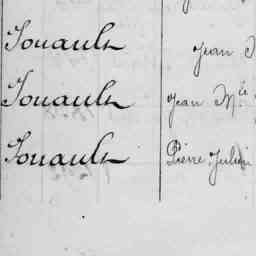 Jouault Jean
Jouault Jean Mle
Jouault Pierre Julien